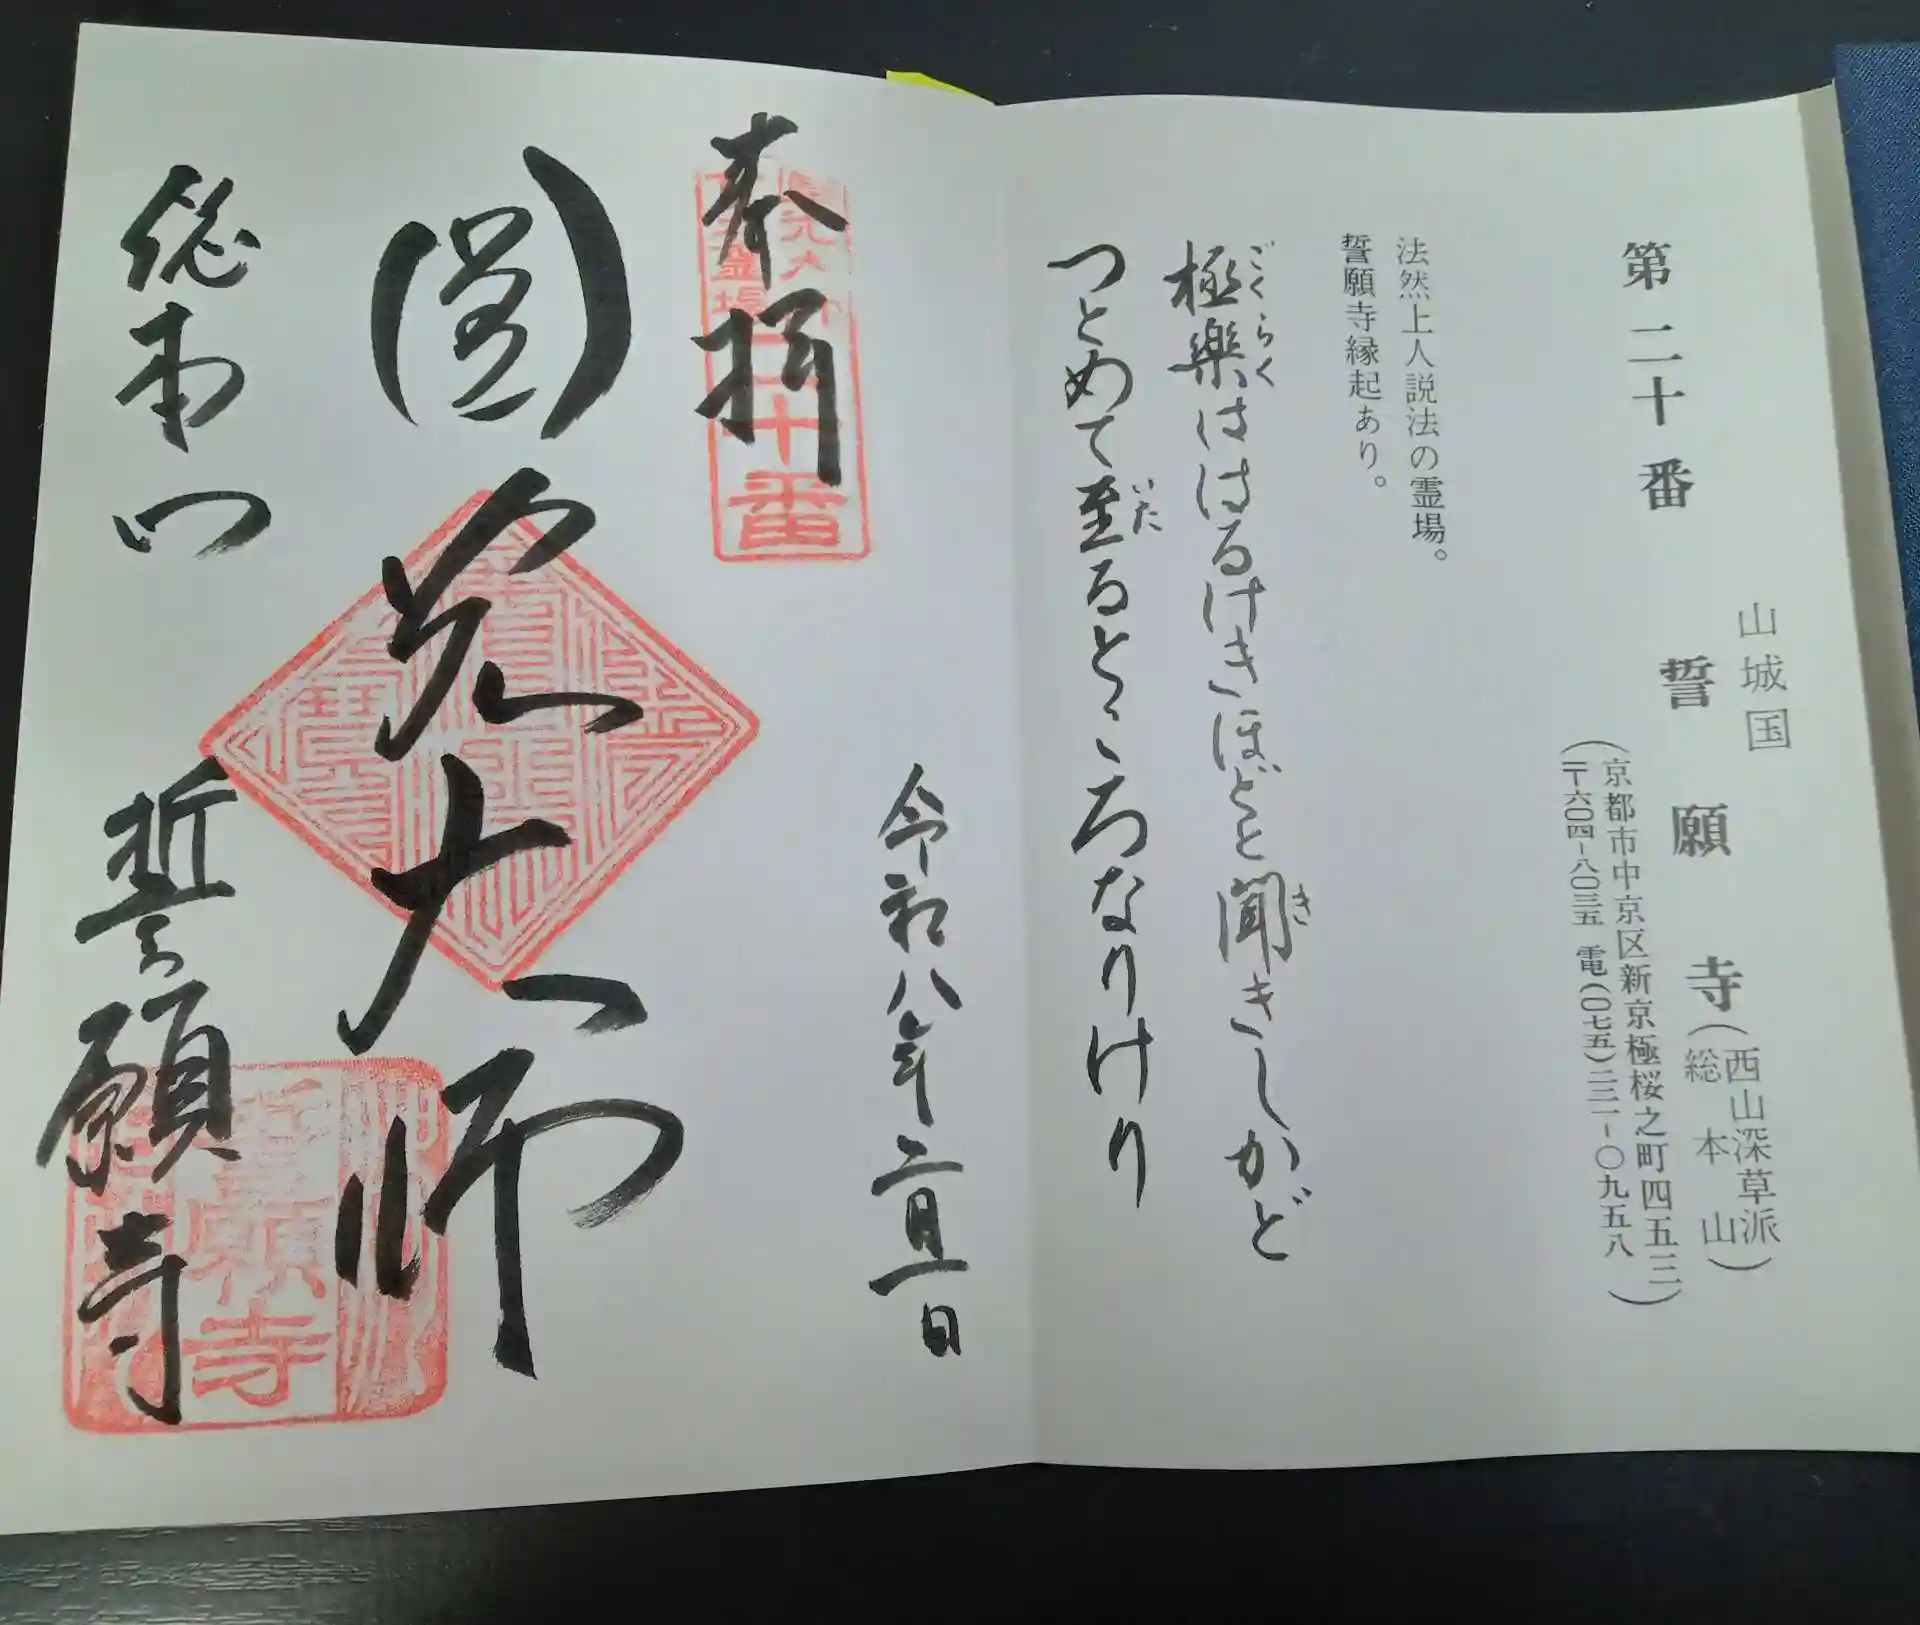 山城国
第二十番 誓願寺(西山深草派 総本山)
(京都市中京区新京極桜之町四五三
〒六〇四-八〇三五 電(〇七五)二二一-〇九五八)
法然上人説法の霊場。
誓願寺縁起あり。
極楽ははるけきほどと聞きしかど
ごくらく
き
つとめて至るところなりけり
いた
奉拝
二十番
令和八年二月一日
圓光大師
総本山
誓願寺
誓願寺